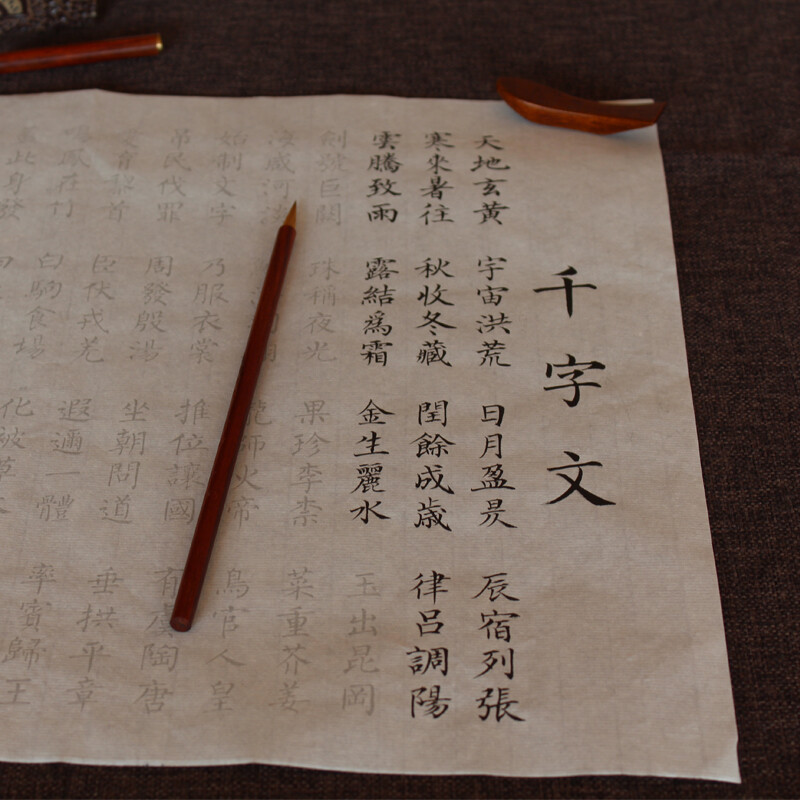 千字文
天地玄黄 宇宙洪荒 日月盈昃 辰宿列張
寒來暑往 秋收冬藏 閏餘成歲 律呂調陽
雲騰致雨 露結爲霜 金生麗水 玉出昆岡
劍號巨闕 珠稱夜光 果珍李柰 菜重芥姜
海咸河 龍師火帝 鳥官人皇
始制文字 乃服衣裳 推位讓國 有虞陶唐
吊民伐罪 周發殷湯 坐朝問道 垂拱平章
愛育黎首 臣伏戎羌 遐邇一體 率賓歸王
鳴鳳在竹 白駒食場 化被草木
此身發